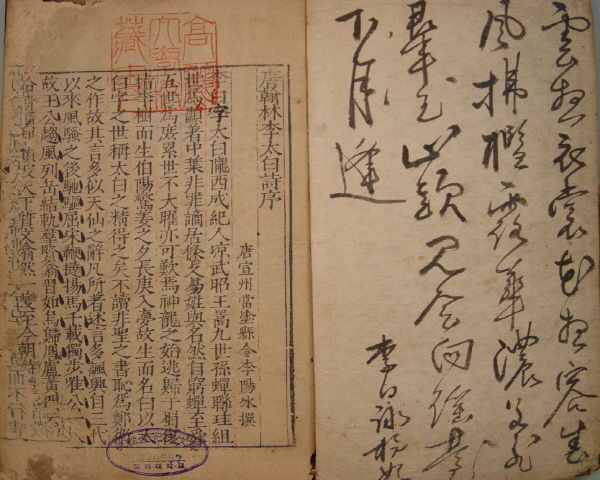 雲想衣裳花想容春
風拂檻露華濃若非
羣玉山頭見會向瑤臺
下月逢
李白詠楊妃
唐翰林李太白詩序
唐宣州當塗縣令李陽冰撰
李白字太白隴西成紀人凉武昭王暠九世孫蟬聯珪組
世爲顯著中葉非罪謫居條支易姓與名然自窮蟬至舜
五世爲庶累世不大曜亦可歎焉神龍之始逃歸于蜀復
指李樹而生伯陽驚姜之夕長庚入夢故生而名白以太
白字之世稱太白之精得之矣不讀非聖之書恥爲鄭衛
之作故其言多似天仙之辭凡所著述言多諷興自三代
以來風騷之後馳驅屈宋鞭撻揚馬千載獨步唯公一人
故王公趨風列岳結軌群賢翕習如鳥歸鳳盧黃門云
拾遺頹波天下質文翕然一變至今朝
고려대학교